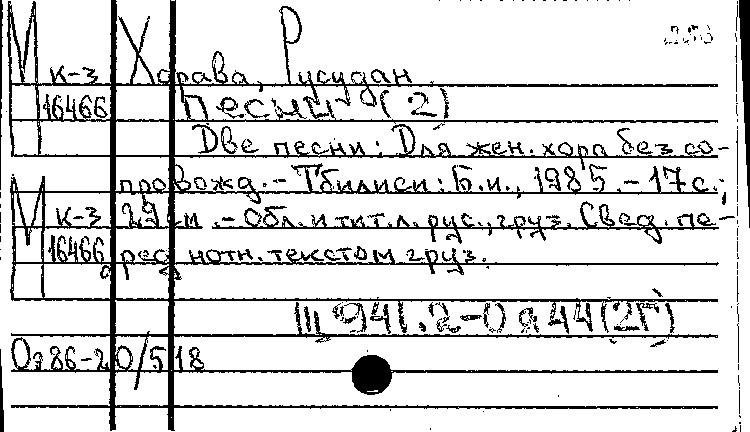 М к-3 Хорава, Русудан.
16466 Песни (2)
Две песни: Для жен. хора без со-
провожд. – Тбилиси: Б.и., 1985. – 17 с.;
М к-3 29 см. – Обл. и тит. л. рус., груз. Свед. пе-
16466 ред нотн. текстом груз.
Щ 941.2-0 я 44 (2Г)
Оэ 86-20/518